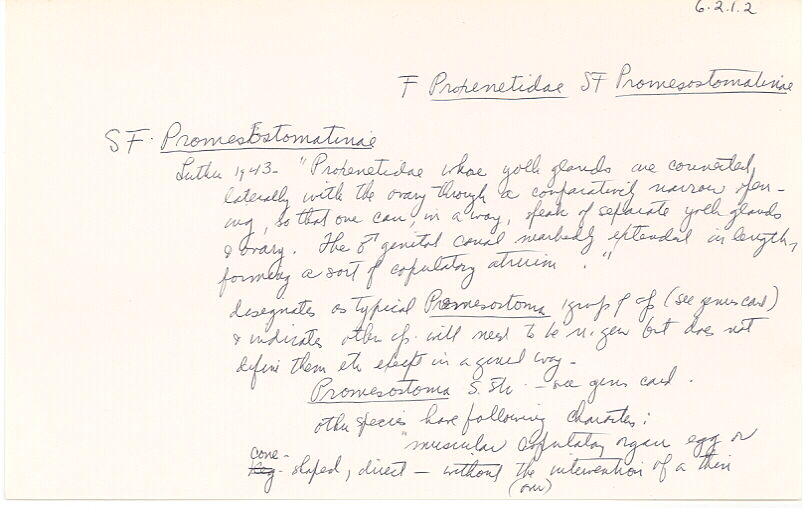 6.2.1.2
F Proxenetidae SF Promesostomatinae
SF. Promesostomatinae
Luther 1943 - "Proxenetidae whose yolk glands are connected
laterally with the ovary through a comparatively narrow open-
ing, so that one can, in a way, speak of separate yolk glands
& ovary. The ♂ genital canal markedly extended in length,
forming a sort of copulatory atrium."
designates as typical Promesostoma 1 group of sp (see genus card)
& indicates other sp. will need to be n. gen but does not
define them etc except in a general way -
Promesostoma s. str. - see genus card.
other species have following characters:
"muscular copulatory organ egg or
cone-
shaped, direct - without the intervention of a thin
(over)